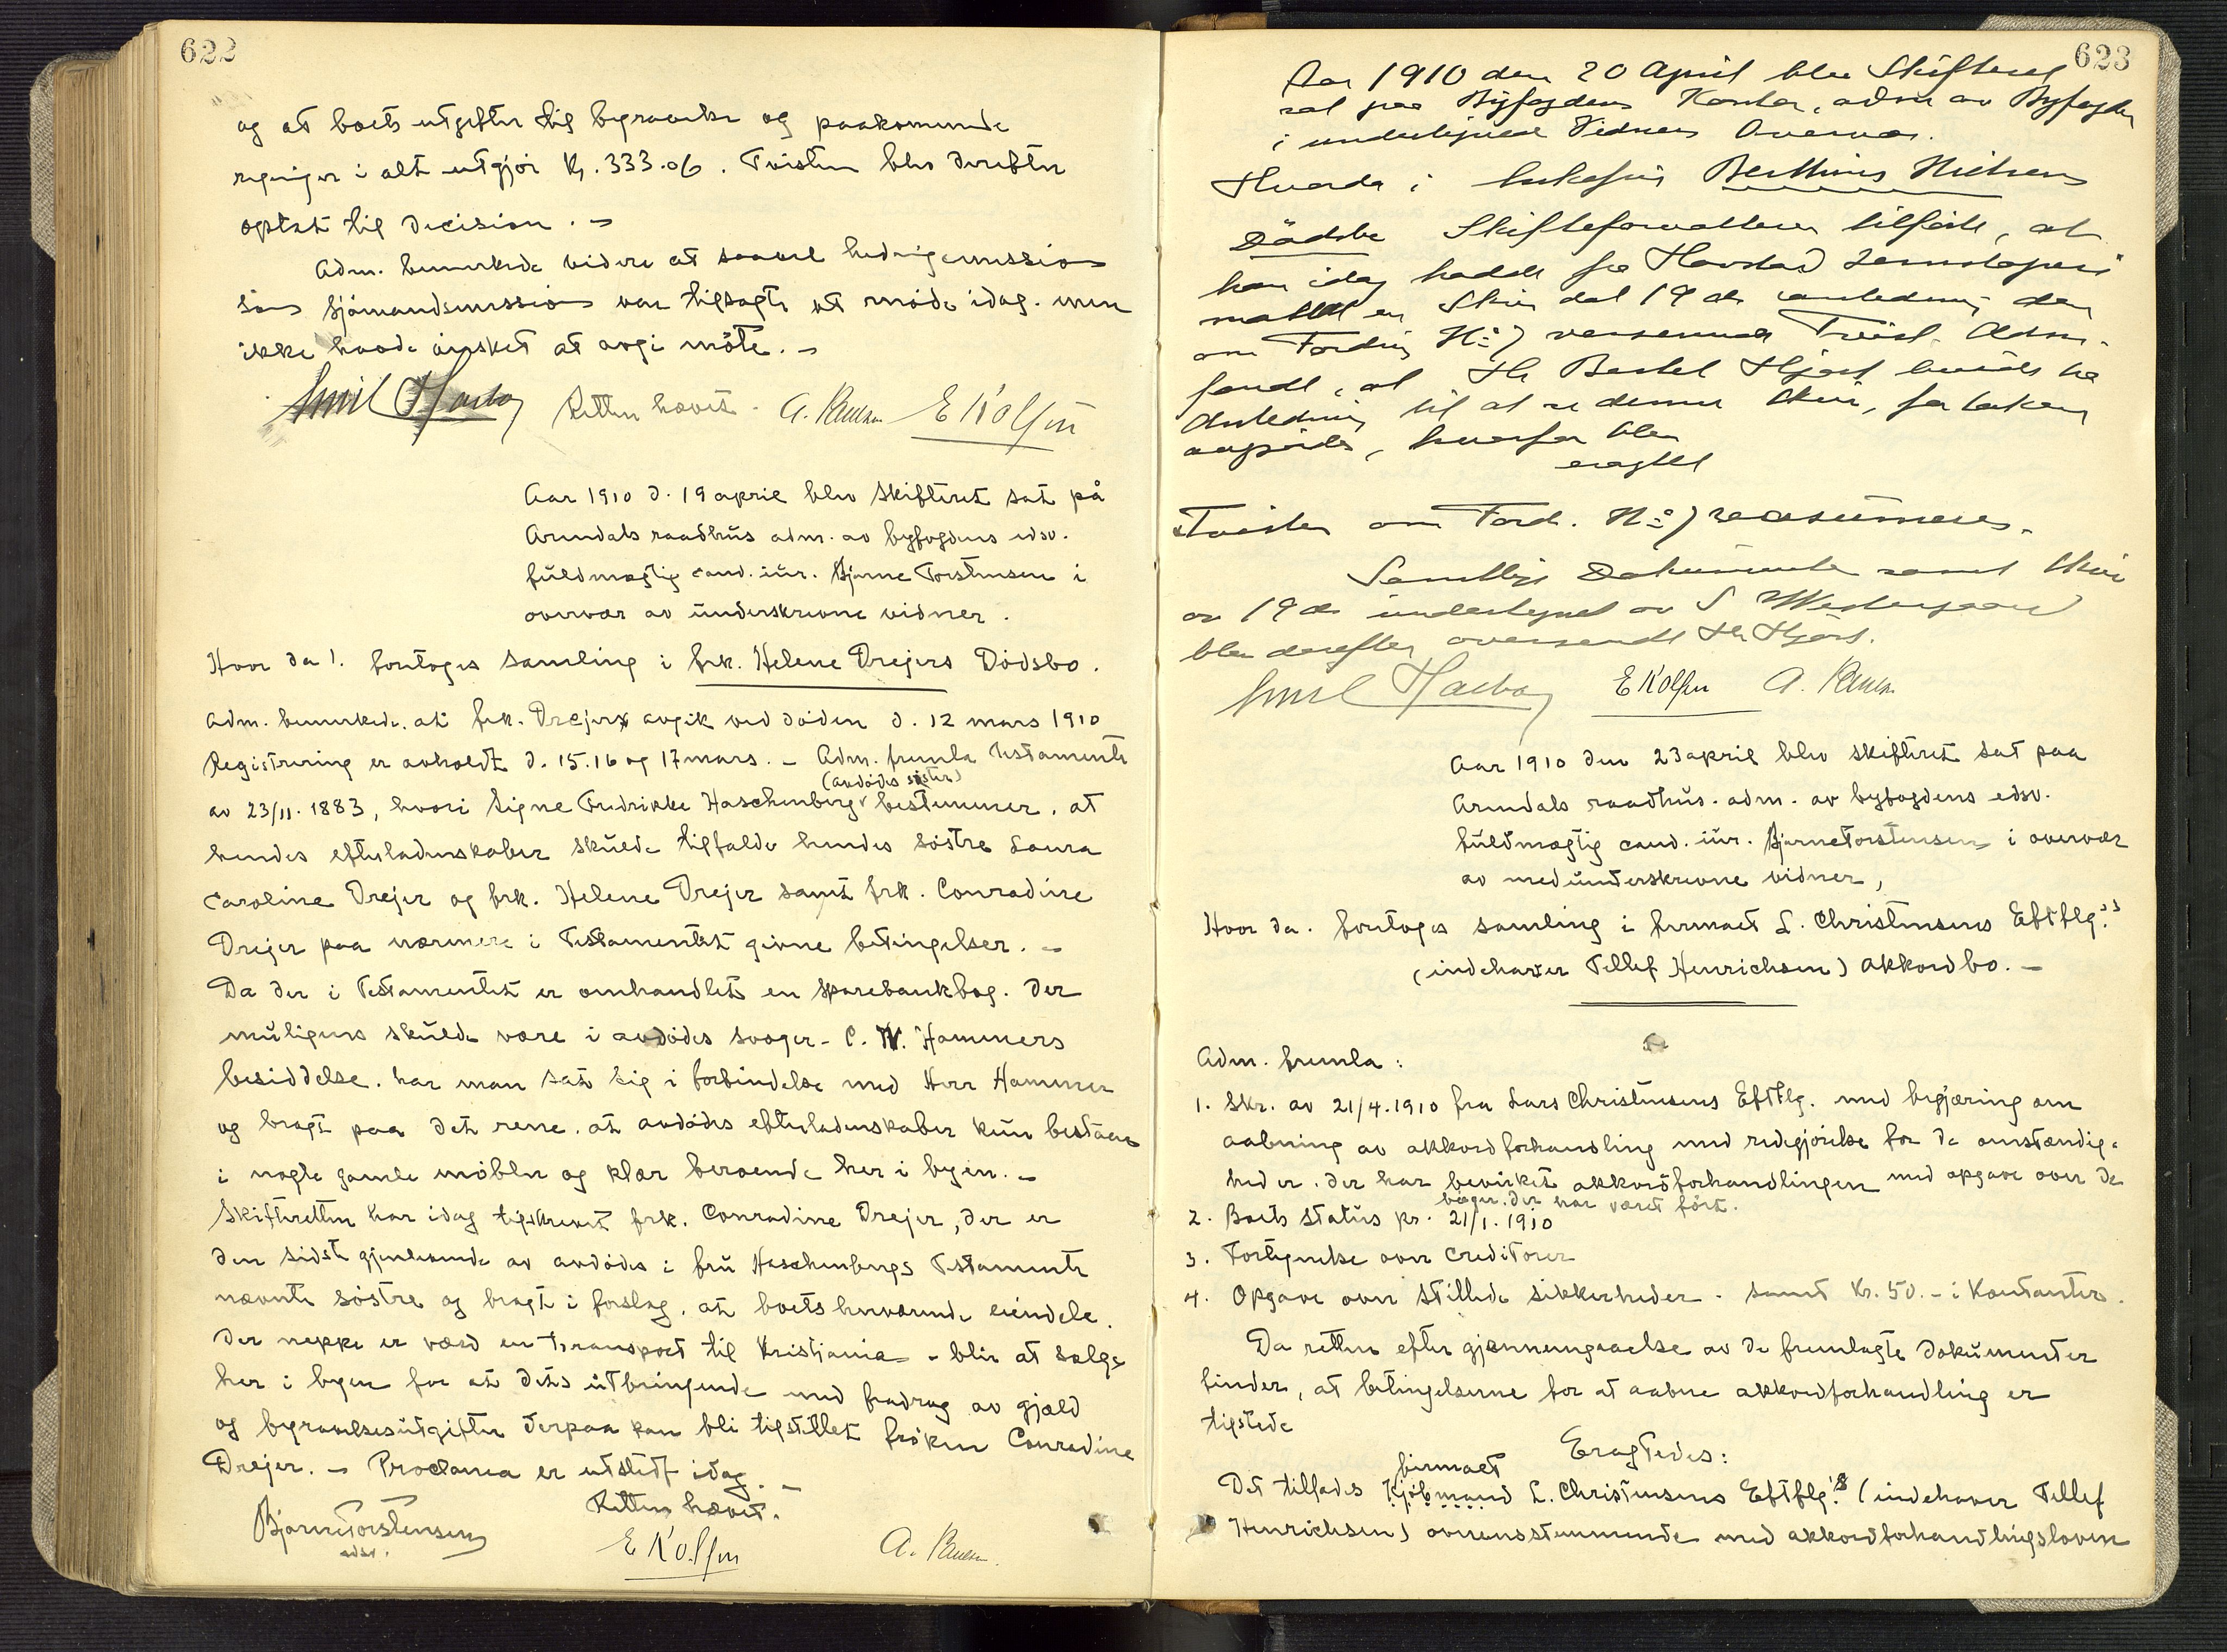 622
og at boets utgifter til begravelse og paakommende
regninger i alt utgjør Kr. 333.06. Tvisten blev derefter
optat til decision. –
Adm. bemerkede videre at saavel hedningemission
som sjømandsmission var tilsagte at møde idag. men
ikke havde ønsket at avgi møte. –
Emil Retten hævet. A. Paulsen E Kolfin
Aar 1910 d. 19 april blev skifteret sat på
Arendals raadhus adm. av byfogdens edsv.
fuldmægtig cand. iur. Bjarne Torstensen i
overvær av underskrevne vidner.
Hvor da!. foretoges samling i frk. Helene Drejers Dødsbo.
Adm. bemerkede. at frk. Drejer avgik ved døden d. 12 mars 1910
Registrering er avholdt d. 15. 16 og 17 mars. – Adm. fremla testamente
(avdødes søster)
av 23/11. 1883, hvori Signe Fredrikke Haschenberg bestemmer. at
hendes efterladenskaber skulde tilfalde hendes søstre Laura
Caroline Drejer og frk. Helene Drejer samt frk. Conradine
Drejer paa nærmere i Testamentet givne betingelser. –
Da der i Testamentet er omhandlet en sparebankbog. der
muligens skulde være i avdødes svoger – C. W. Hammers
besiddelse. har man sat sig i forbindelse med Herr Hammer
og bragt paa det rene. at avdødes efterladenskaber kun bestaar
i nogle gamle møbler og klær beroende her i byen. –
Skifteretten har idag tilskrevet frk. Conradine Drejer, der er
den sidst gjenlevende av avdødes i fru Haschenbergs Testamente
nævnte søstre og bragt i forslag. at boets herværende eiendele.
der neppe er værd en transport til Kristiania – blir at sælge
her i byen for at dets utbringende med fradrag av gjæld
og begravelsesutgifter derpaa kan bli tilstillet frøken Conradine
Drejer. – Proclama er utstedt idag. –
Retten hævet.
Bjarne Torstensen
edsv.
E Kolfin A. Paulsen.
623
Aar 1910 den 20 April blev Skifteret
sat paa Byfogdens Kontor, adm av Byfogden
i undertegnede Vidners Overvær.
Hvorda i Berthine Nielsens
Dødsbo Skifteforvalteren tilførte, at
han idag hadde fra
mottat en Skriv dat 19 ds anledning den
om Fordring No 7 verserende Tvist. Adm.
fandt, at Hr Bertel Hjort burde ha
Anledning til at se denne Skriv, før saken
avgjordes, hvorfor blev
eragtet
Tvisten om Ford. No 7 reasumeres.
Samtlige Dokumenter samt Skriv
av 19 ds undertegnet av S Westergaard
blev derefter oversendt Hr Hjort.
Emil E Kolfin A. Paulsen
Aar 1910 den 23 april blev skifteret sat paa
Arendals raadhus. adm. av byfogdens edsv.
fuldmægtig cand. iur. Bjarne Torstensen i overvær
av medunderskrevne vidner,
Hvor da. foretoges samling i firmaet L. Christensens Eftflg.'s
(indehaver Tellef Henrichsen) akkordbo. –
Adm. fremla:
1. Skr. av 21/4. 1910 fra Lars Christensens Eftflg. med begjæring om
aabning av akkordforhandling med redegjørelse for de omstændig-
heder. der har bevirket akkordforhandlingen med opgave over de
bøger. der har været ført.
2. Boets status pr. 21/1. 1910
3. Fortegnelse over Creditorer
4. Opgave over stillede sikkerheder – samt Kr. 50. – i Kontanter.
Da retten efter gjennemgaaelse av de fremlagte dokumenter
finder, at betingelserne for at aabne akkordforhandling er
tilstede
Eragtedes:
firmaet
Det tillades Kjøbmand L. Christensens Eftflg.'s (indehaver Tellef
Henrichsen) overensstemmende med akkordforhandlingsloven